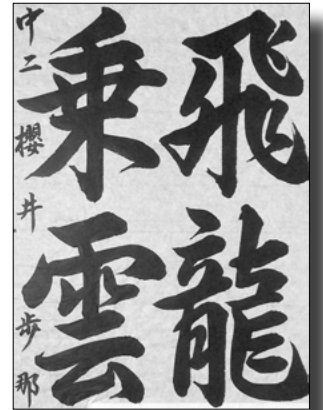 飛龍
乗雲
中二 櫻井 歩那